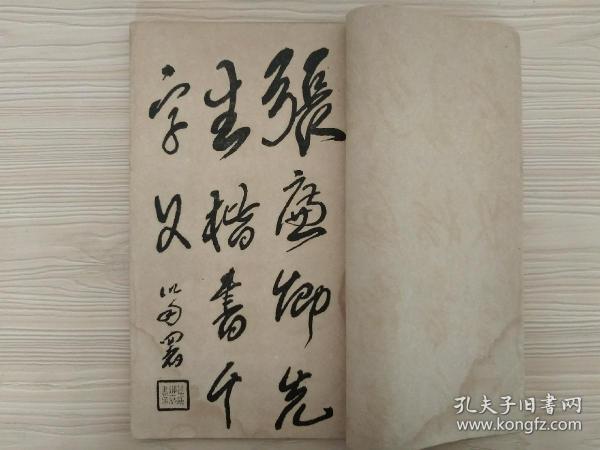 張廉卿先
生楷書千
字文
孔夫子旧书网
www.kongfz.com